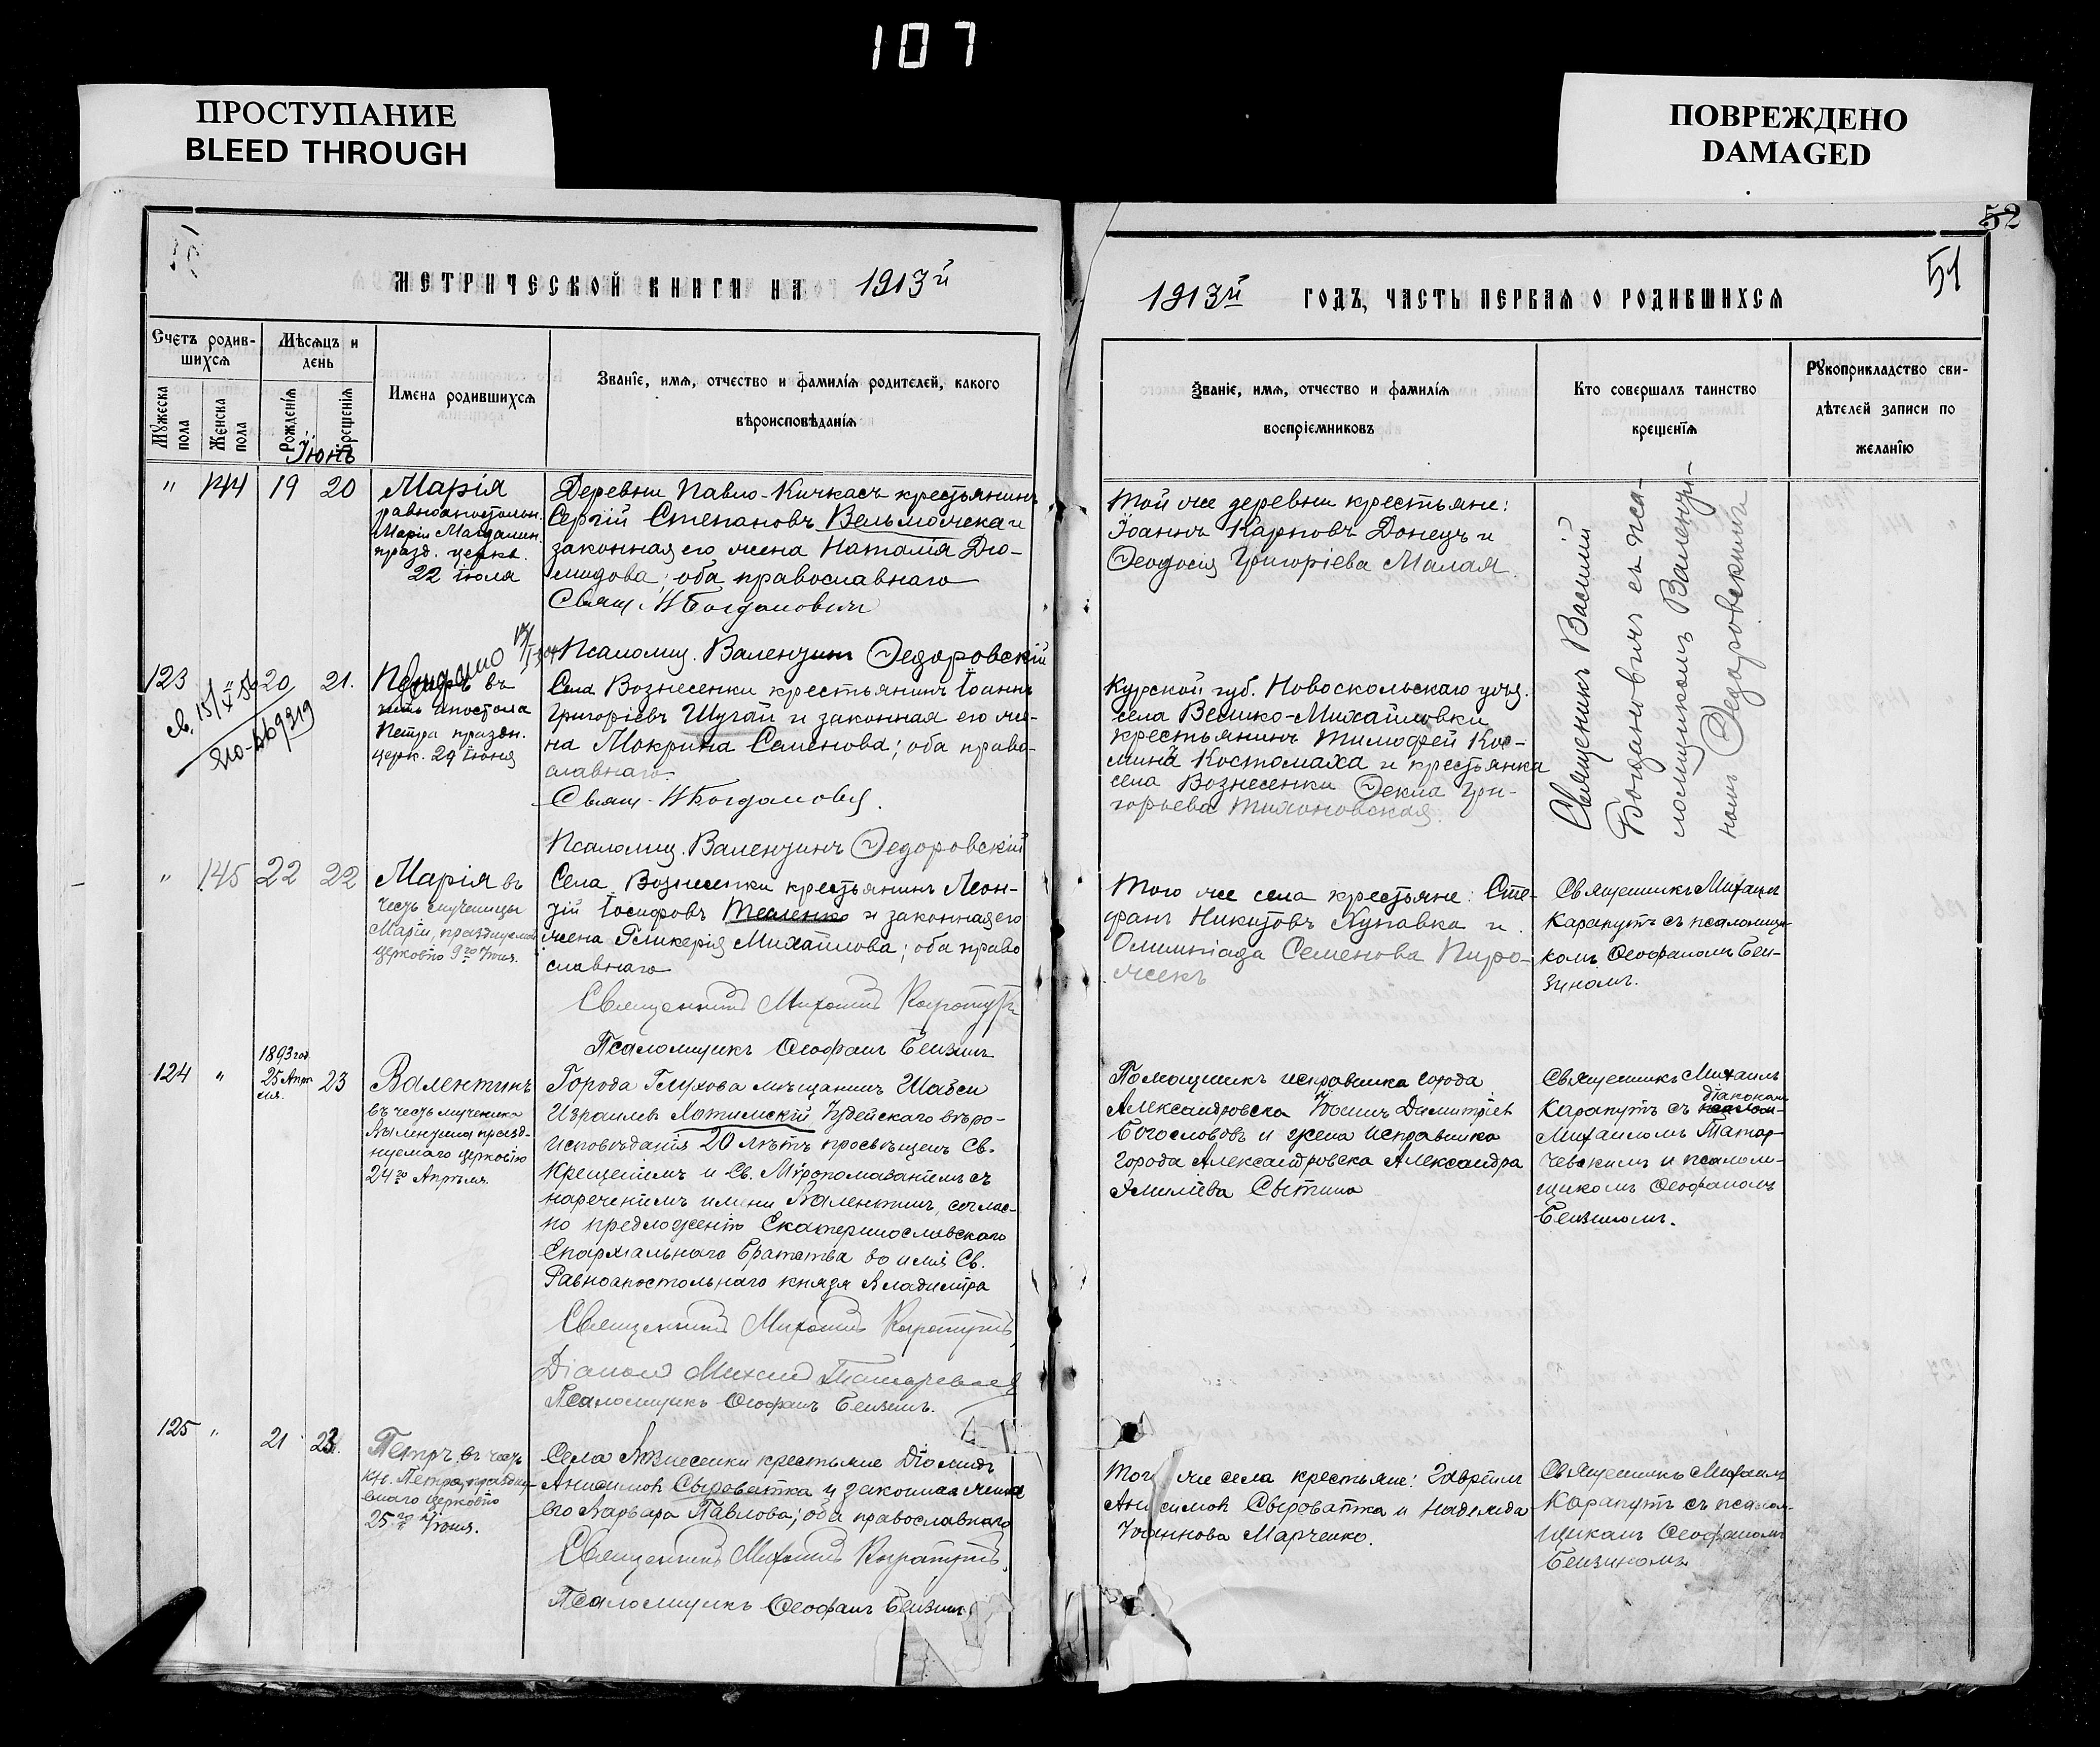 107
ПРОСТУПАНИЕ
BLEED THROUGH
ПОВРЕЖДЕНО
DAMAGED
52
51
МЕТРИЧЕСКОЙ КНИГИ НА 1913й
1913й ГОДЪ, ЧАСТЬ ПЕРВАЯ О РОДИВШИХСЯ
Счетъ родив-
шихся
Мужеска пола
Женска пола
Мѣсяцъ и
день
Рожденія
Крещенія
Имена родившихся
Званіе, имя, отчество и фамилія родителей, какого
вѣроисповѣданія
Званіе, имя, отчество и фамилія
воспріемниковъ
Кто совершалъ таинство
крещенія
Рукоприкладство сви-
дѣтелей записи по
желанію
Іюнь
" 144 19 20
Марія
равноапостольн.
Маріи Магдалин.
празд. церкв.
22 Іюля
Деревни Павло-Кичкасъ крестьянинъ
Сергій Степановъ Вельможека и
законная его жена Наталія Діо-
мидова; оба православнаго
Свящ. Н Богдановичъ
Псаломщ. Валентинъ Ѳедоровскій
Той же деревни крестьяне:
Іоаннъ Карповъ Донецъ и
Ѳеодосія Григоріева Малая.
Священникъ Василій
Богдановичъ съ пса-
ломщикомъ Валенти-
номъ Ѳедоровскимъ
123 " 20 21.
св. 15/X 56
Петръ въ
честь апостола
Петра праздн.
церк. 29 Іюня
Села Вознесенки крестьянинъ Іоаннъ
Григоріевъ Шугай и законная его же-
на Мокрина Семенова; оба право-
славнаго.
Свящ. Н Богданович.
Псаломщ. Валентинъ Ѳедоровскій
Курской губ. Новоскольскаго уѣз.
села Велико-Михайловки
крестьянинъ Тимофей Кос-
минъ Костомаха и крестьянка
села Вознесенки Ѳекла Гри-
горьева Тихоновская.
" 145 22 22
Марія въ
честь мученицы
Маріи, празднуемой
церковію 9го Іюня.
Села Вознесенки крестьянинъ Леон-
тій Іосифовъ Теаленко и законная его
жена Гликерія Михайлова; оба право
славнаго
Священникъ Михаилъ Карапутъ
Псаломщикъ Ѳеофанъ Бензинъ
Того же села крестьяне: Сте-
фанъ Никитовъ Хупавка и
Олимпіада Семенова Пиро-
жекъ
Священникъ Михаилъ
Карапутъ съ псаломщи-
комъ Ѳеофаномъ Бен-
зиномъ.
124 " 1893 год.
25 Апрѣ
ля. 23
Валентинъ
въ честь мученика
Валентина празд-
нуемаго церковію
24го Апрѣля.
Города Глухова мѣщанинъ Шабси
Израилевъ Хотимскій Іудейскаго вѣро-
исповѣданія 20 лѣтъ просвѣщенъ Св.
Крещеніемъ и Св. Мѵропомазаніемъ съ
нареченіемъ имени Валентинъ, соглас-
но предложенію Екатеринославскаго
Епархіальнаго Братства во имя Св.
Равноапостольнаго князя Владиміра
Священникъ Михаилъ Карапутъ
Діаконъ Михаилъ Татаревскій
Псаломщикъ Ѳеофанъ Бензинъ.
Помощникъ исправника города
Александровска Іоаннъ Димитріев
Богослововъ и жена исправника
города Александровска Александра
Эмиліева Свѣтина
Священникъ Михаилъ
діакономъ
Карапутъ съ псалом-
Михаиломъ Татар-
чевскимъ и псалом-
щикомъ Ѳеофаномъ
Бензиномъ.
125 " 21 23.
Петръ, въ честь
кн. Петра, праздну-
емаго церковію
25го Іюня.
Села Вознесенки крестьяне Діомидъ
Анисимовъ Сыроватка и законная жена
его Варвара Павлова; оба православнаго
Священникъ Михаилъ Карапутъ.
Псаломщикъ Ѳеофанъ Бензинъ
Того же села крестьяне: Гавріилъ
Анисимовъ Сыроватка и Надежда
Іоаннова Марченко.
Священникъ Михаилъ
Карапутъ съ псалом-
щикомъ Ѳеофаномъ
Бензиномъ